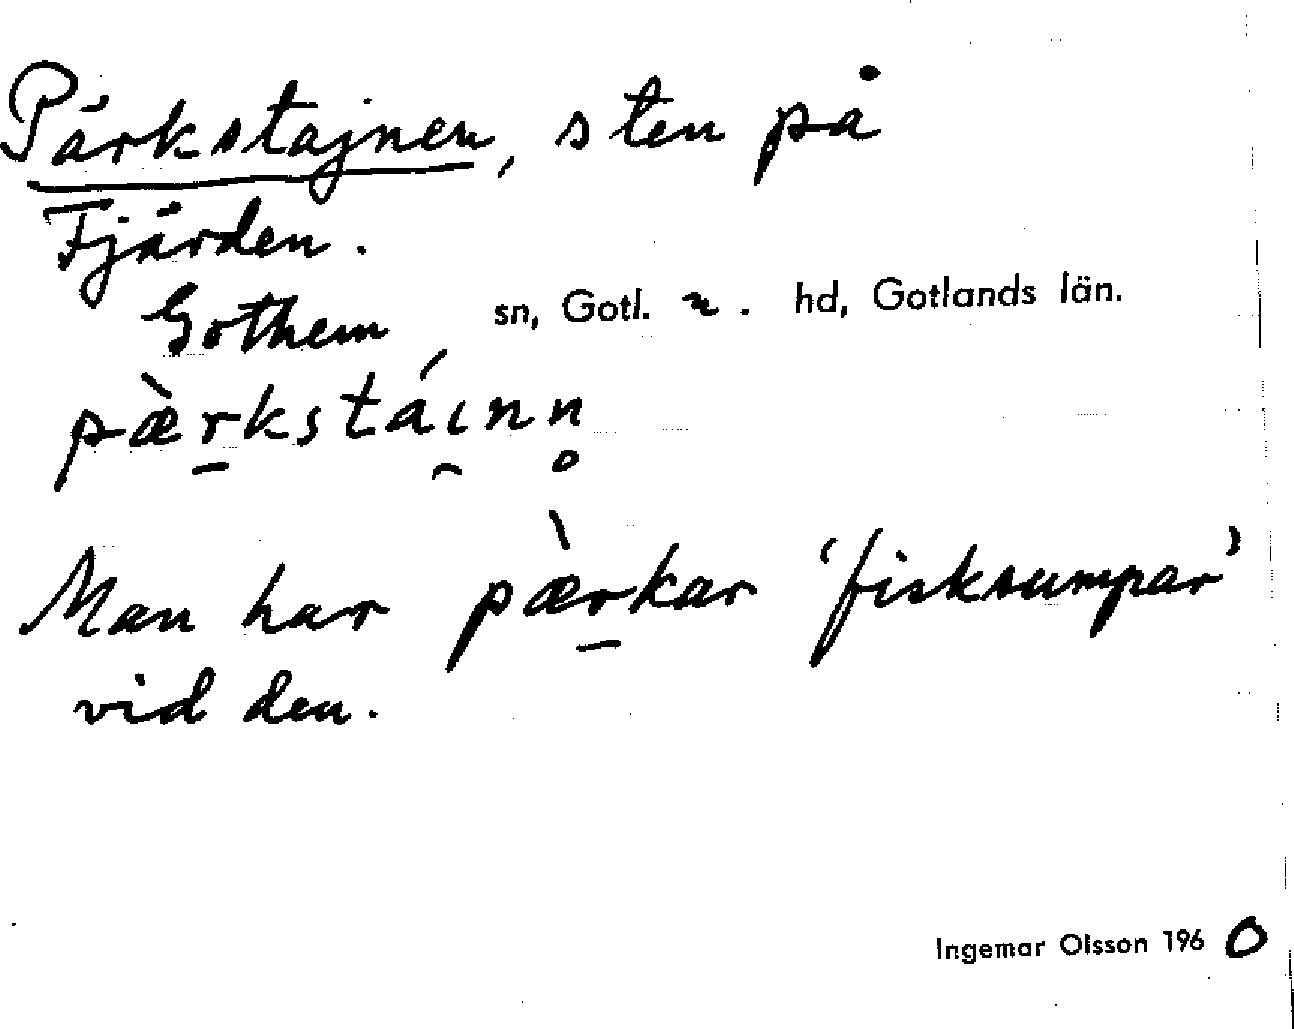 Pärkstajnen, sten på
Fjärden.
Gothem sn, Gotl. n. hd, Gotlands län.
pæ̀r̠kstáı̯nn̥
Man har pæ̀r̠kar 'fisksumpar'
vid den.
Ingemar Olsson 1960